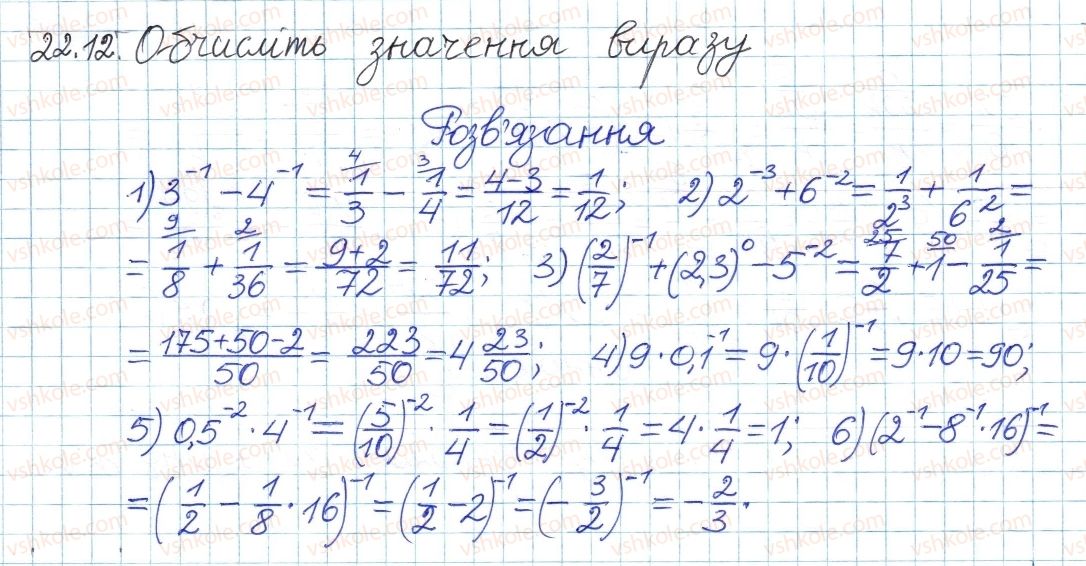 22.12. Обчисліть значення виразу
Розв'язання
1) 3⁻¹ − 4⁻¹ = ⁴⁄ 1/3 − ³⁄ 1/4 = (4−3)/12 = 1/12; 2) 2⁻³ + 6⁻² = 1/2³ + 1/6² =
= ⁹⁄ 1/8 + ²⁄ 1/36 = (9+2)/72 = 11/72; 3) (2/7)⁻¹ + (2,3)⁰ − 5⁻² = ²⁵⁄ 7/2 + ⁵⁰⁄ 1 − ²⁄ 1/25 =
= (175+50−2)/50 = 223/50 = 4 23/50; 4) 9 · 0,1⁻¹ = 9 · (1/10)⁻¹ = 9 · 10 = 90;
5) 0,5⁻² · 4⁻¹ = (5/10)⁻² · 1/4 = (1/2)⁻² · 1/4 = 4 · 1/4 = 1; 6) (2⁻¹ − 8⁻¹ · 16)⁻¹ =
= (1/2 − 1/8 · 16)⁻¹ = (1/2 − 2)⁻¹ = (−3/2)⁻¹ = −2/3.
vshkole.com